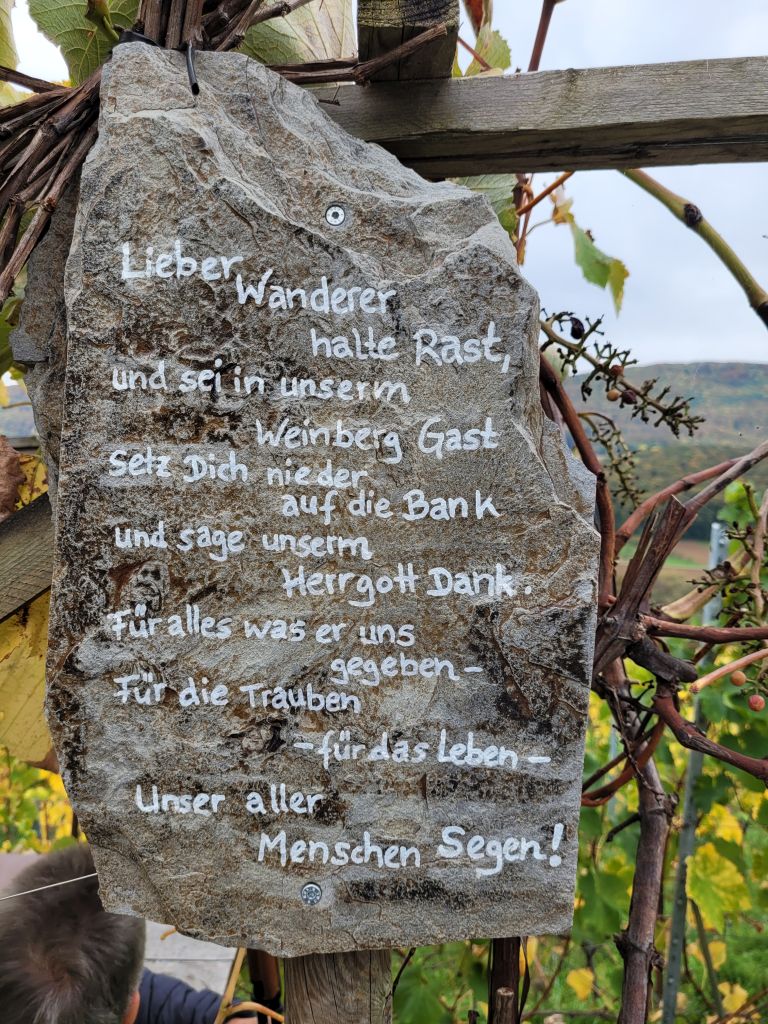 Lieber
Wanderer
halte Rast,
und sei in unserm
Weinberg Gast
Setz Dich nieder
auf die Bank
und sage unserm
Herrgott Dank.
Für alles was er uns
gegeben-
Für die Trauben
-für das Leben-
Unser aller
Menschen Segen!